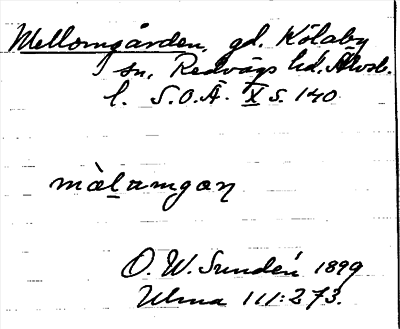 Mellomgården, gd. Kölaby
sn, Redvägs hd. Älvsb.
l. S.O.Ä. X s. 140
màlamgan
O. W. Sundén 1899
Ulma 111:273.